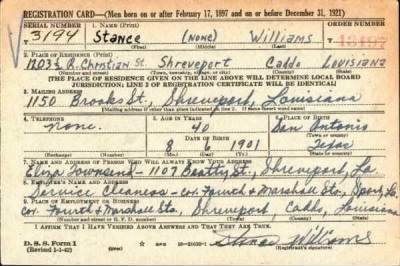 REGISTRATION CARD—(Men born on or after February 17, 1897 and on or before December 31, 1921)
SERIAL NUMBER 1. NAME (Print) ORDER NUMBER
3194 Stance (None) Williams 13197
(First) (Middle) (Last)
2. PLACE OF RESIDENCE (Print)
1203½ R. Christian St. Shreveport Caddo Louisiana
(Number and street) (Town, township, village, or city) (County) (State)
[THE PLACE OF RESIDENCE GIVEN ON THE LINE ABOVE WILL DETERMINE LOCAL BOARD
JURISDICTION; LINE 2 OF REGISTRATION CERTIFICATE WILL BE IDENTICAL]
3. MAILING ADDRESS
1150 Brooks St., Shreveport, Louisiana
4. TELEPHONE 5. AGE IN YEARS 6. PLACE OF BIRTH
None. 40 San Antonio
DATE OF BIRTH
8 6 1901 Texas
(Exchange) (Number) (Mo.) (Day) (Yr.) (State or country)
7. NAME AND ADDRESS OF PERSON WHO WILL ALWAYS KNOW YOUR ADDRESS
Eliza Townsend - 1107 Beatty St., Shreveport, La.
8. EMPLOYER'S NAME AND ADDRESS
Service Cleaners - cor. Fourth & Marshall Sts., Sport, La.
9. PLACE OF EMPLOYMENT OR BUSINESS
Cor. Fourth & Marshall Sts., Shreveport, Caddo, Louisiana
(Number and street or R. F. D. number) (Town) (County) (State)
I AFFIRM THAT I HAVE VERIFIED ABOVE ANSWERS AND THAT THEY ARE TRUE.
D. S. S. Form 1
(Revised 1-1-42) Stance Williams
(Registrant's signature)